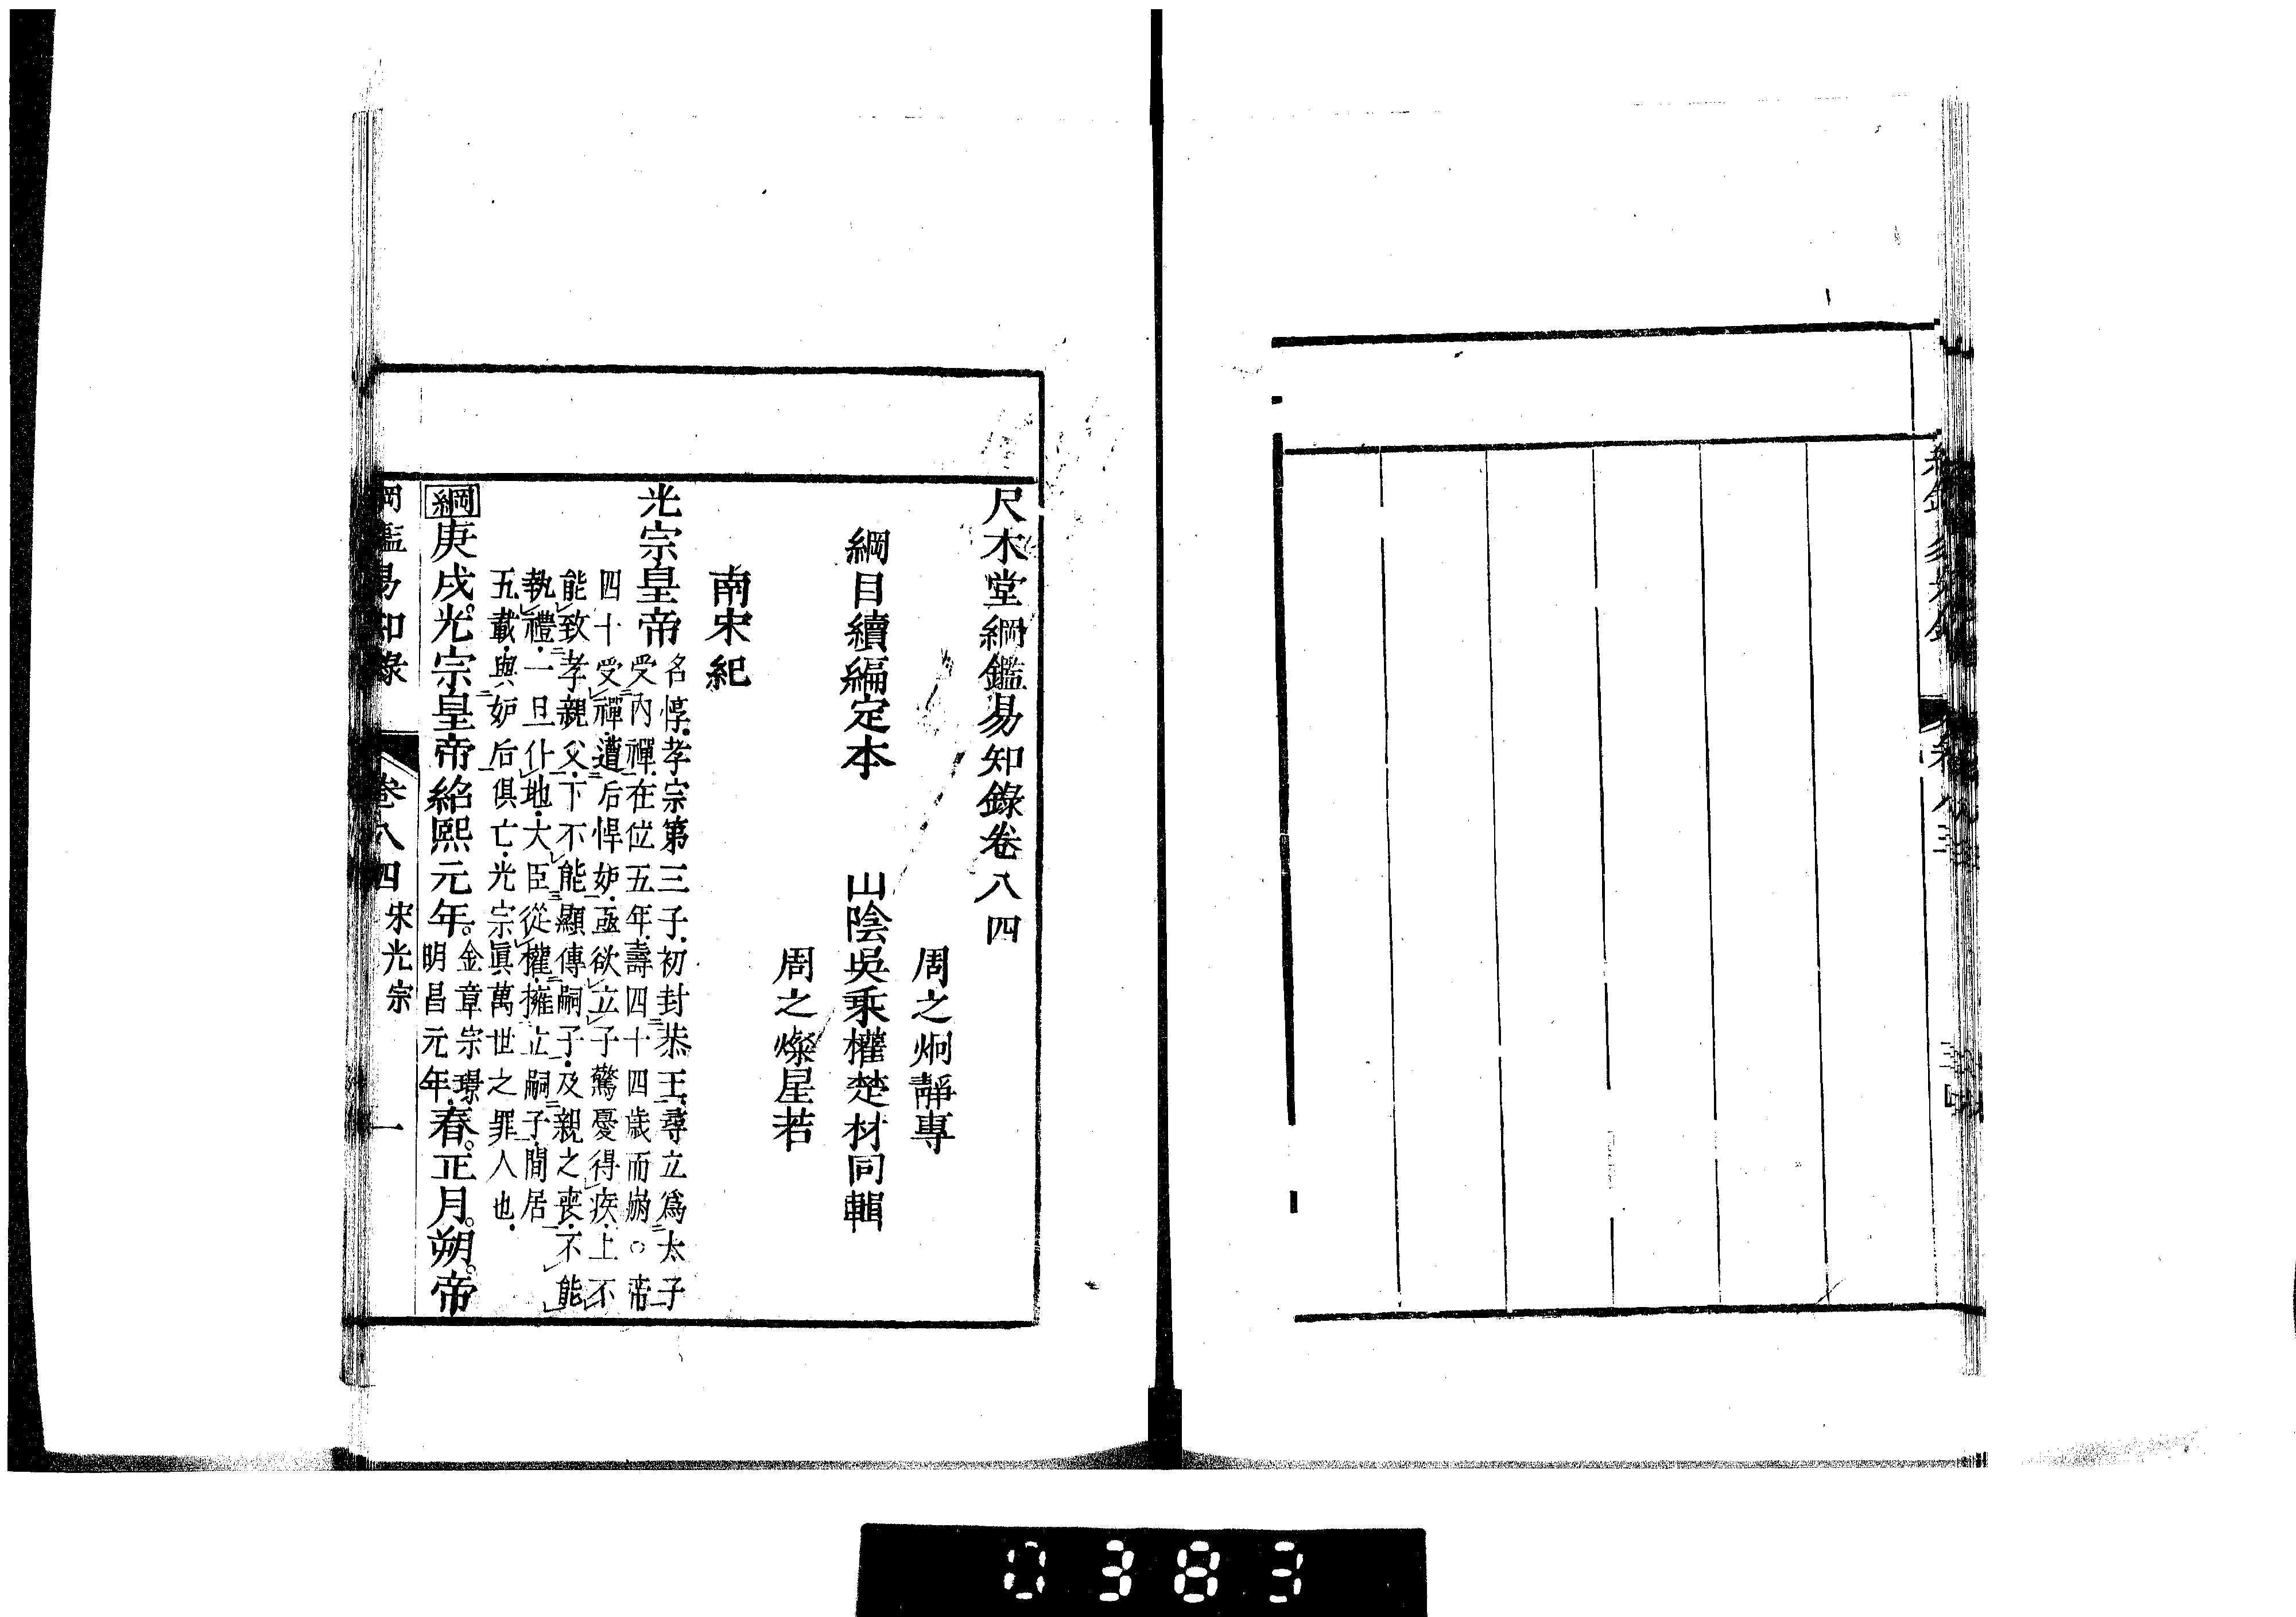 尺木堂綱鑑易知錄卷八四
周之炯靜專
綱目續編定本　山陰吳乘權楚材同輯
周之燦星若
南宋紀
光宗皇帝
名惇孝宗第三子初封恭王尋立爲太子
受內禪在位五年壽四十四歲而崩○帝
四十受禪遭后悍妒亟欲立子驚憂得疾上不
能致孝親父下不能顯傳嗣子及親之喪不能
執禮一旦仆地大臣從權擁立嗣子閒居
五載與妒后俱亡光宗眞萬世之罪人也
綱庚戌。光宗皇帝紹熙元年。金章宗璟明昌元年春。正月。朔。帝
綱鑑易知錄　卷八四　宋光宗　一